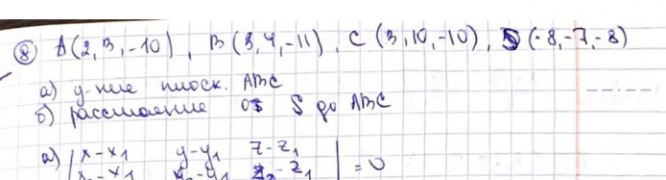 ⑧ A(2, 3, -10), B(3, 4, -11), C(3, 10, -10), S(-8, -7, -8)
а) у-ние плоск. ABC
б) расстояние от S до ABC
а) | x-x₁ y-y₁ z-z₁ | = 0